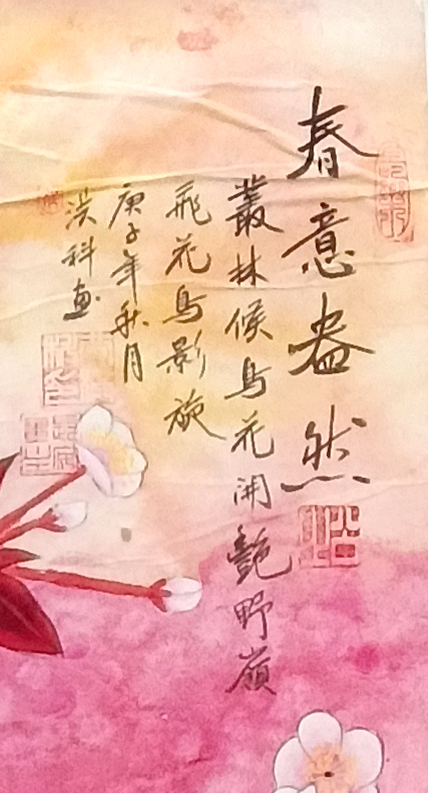 春意盎然
叢林候鳥花開艷野嶺
飛花鳥影旋
庚子年秋月
淏科画